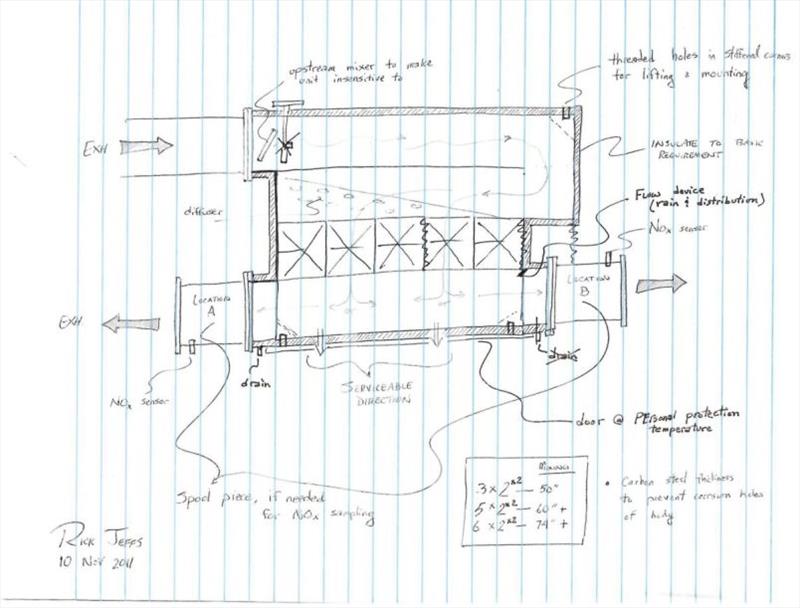 upstream mixer to make
unit insensitive to
threaded holes in stiffened corners
for lifting & mounting
EXH
INSULATE TO BASIC
REQUIREMENT
Flow device
(rain & distribution)
diffuser
NOx sensor
LOCATION
A
LOCATION
B
EXH
NOx sensor
drain
SERVICEABLE
DIRECTION
drain
door @ PERsonal protection
temperature
Spool piece, if needed
for NOx sampling
MIXING
3 x 2 x2 — 50"
5 x 2 x2 — 60" +
6 x 2 x2 — 74" +
• Carbon steel thickness
to prevent corrosion holes
of body
RICK JEFFS
10 NOV 2011